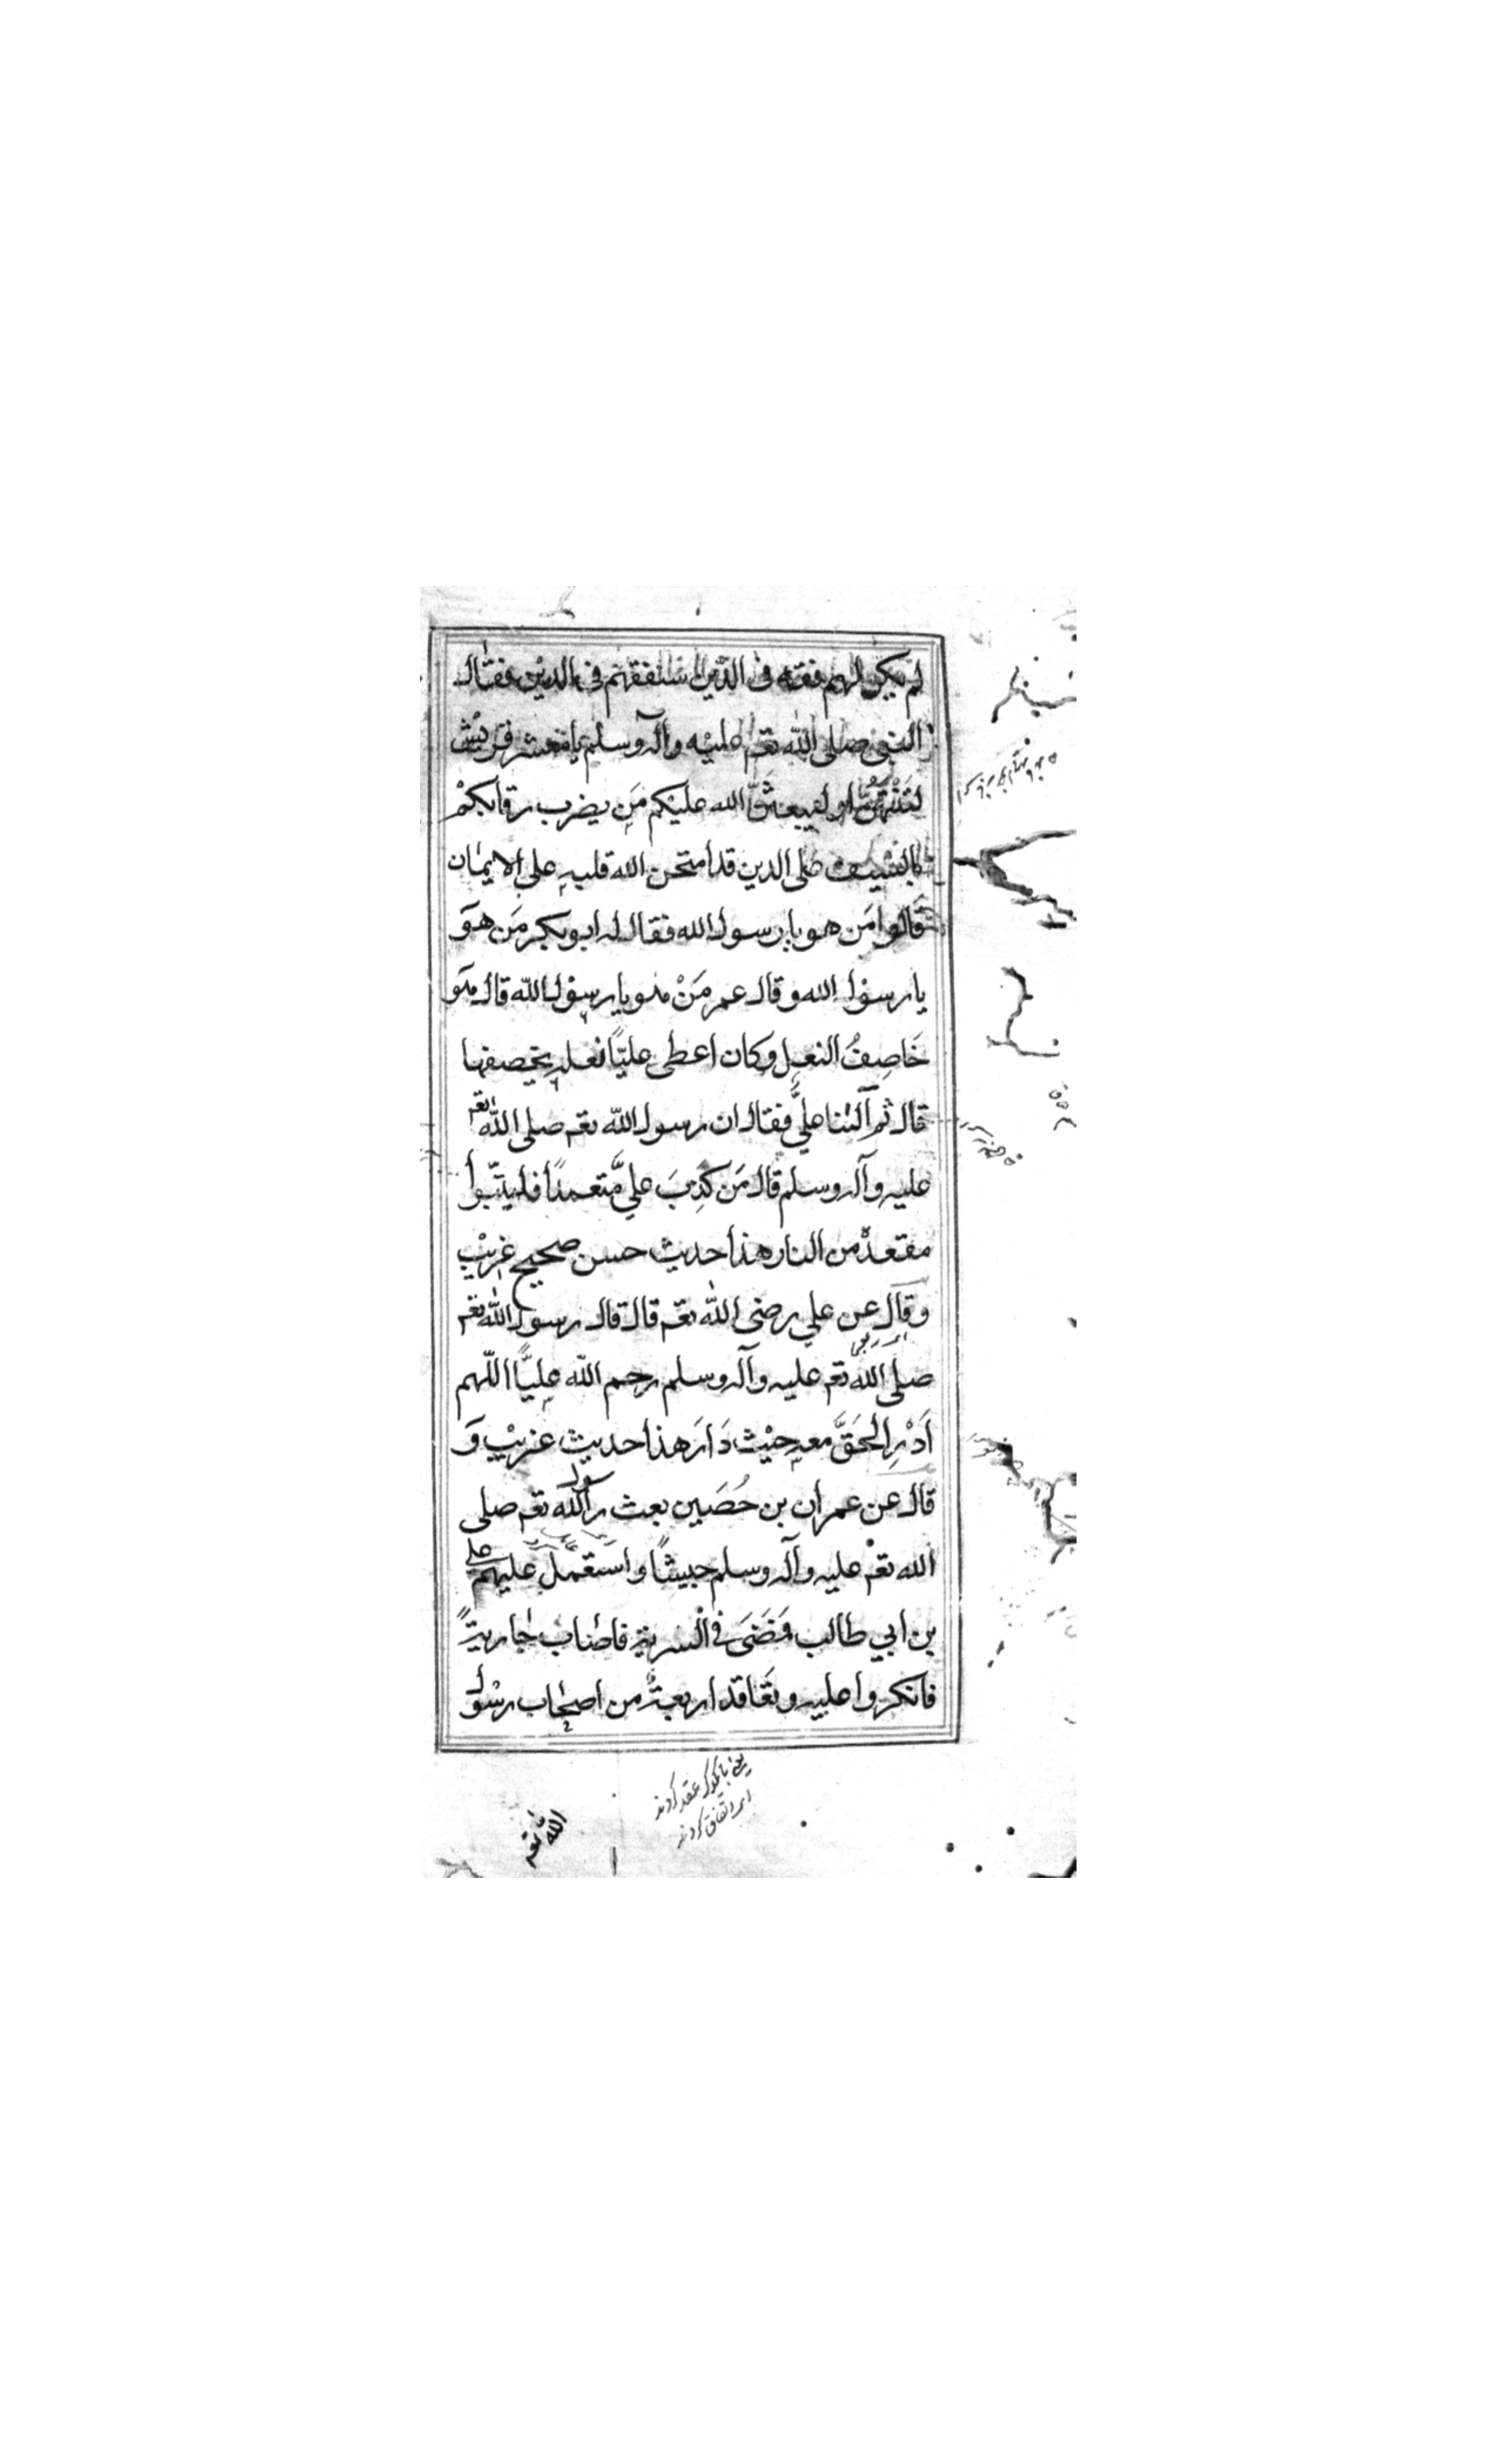 لم يكن لهم فقه فى الدين سنفقههم فى الدين فقال
النبى صلى الله تعم عليه وآله وسلم يا معشر قريش
لتنتهنّ او ليبعثنّ الله عليكم مَن يضرب رقابكمْ
بالسيف على الدين قد امتحن الله قلبه على الايمان
قالوا مَن هو يا رسول الله فقال له ابو بكر مَن هوَ
يا رسول الله وقال عمر مَنْ هو يا رسول الله قال هو
خَاصِفُ النعل وكان اعطى عليًّا نعله يخصفها
قال ثم آلتنا عليٌّ فقال ان رسول الله تعم صلى الله تعم
عليه وآله وسلم قال مَن كَذِبَ عليَّ متعمدًا فليتبّوأ
مقعدهْ من النار هذا حديث حسن صحيح غريْب
وقال عن علي رضى الله تعم قال قال رسول الله تعم
صلى الله تعم عليه وآله وسلم رحم الله عليًّا اللّهم
اَدْرِ الحَقَّ معه حيْث دَارَ هذا حديث غريْب وَ
قال عن عمران بن حُصَين بعث رسول الله تعم صلى
الله تعم عليه وآله وسلم جيشًا واستَعْمَلَ عليهم علي
بن ابي طالب فمَضَى فى السرية فاصاب جاريةً
فانكروا عليه وتعَاقد اربعةٌ من اصحاب رسول
يعنے با يكديگر عقد كردند
واتفاق كردند
الله تعم